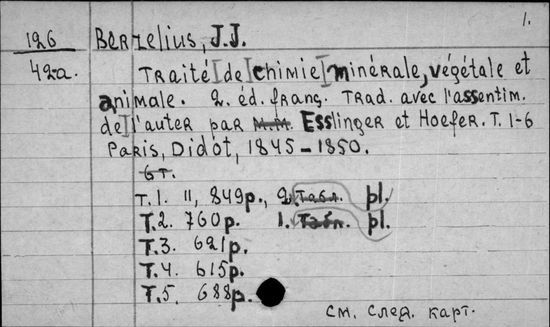 1.
126 Berzelius, J.J.
42a. Traité de chimie minérale, végétale et
animale. 2. éd. franç. Trad. avec l'assentim.
de l'auter par M.M. Esslinger et Hoefer. T. 1-6
Paris, Didot, 1845-1850.
6т.
T.1. 11, 849p., 2. табл. pl.
T.2. 760p. 1. табл. pl.
T.3. 621p.
T.4. 615p.
T.5. 688p.
См. след. карт.